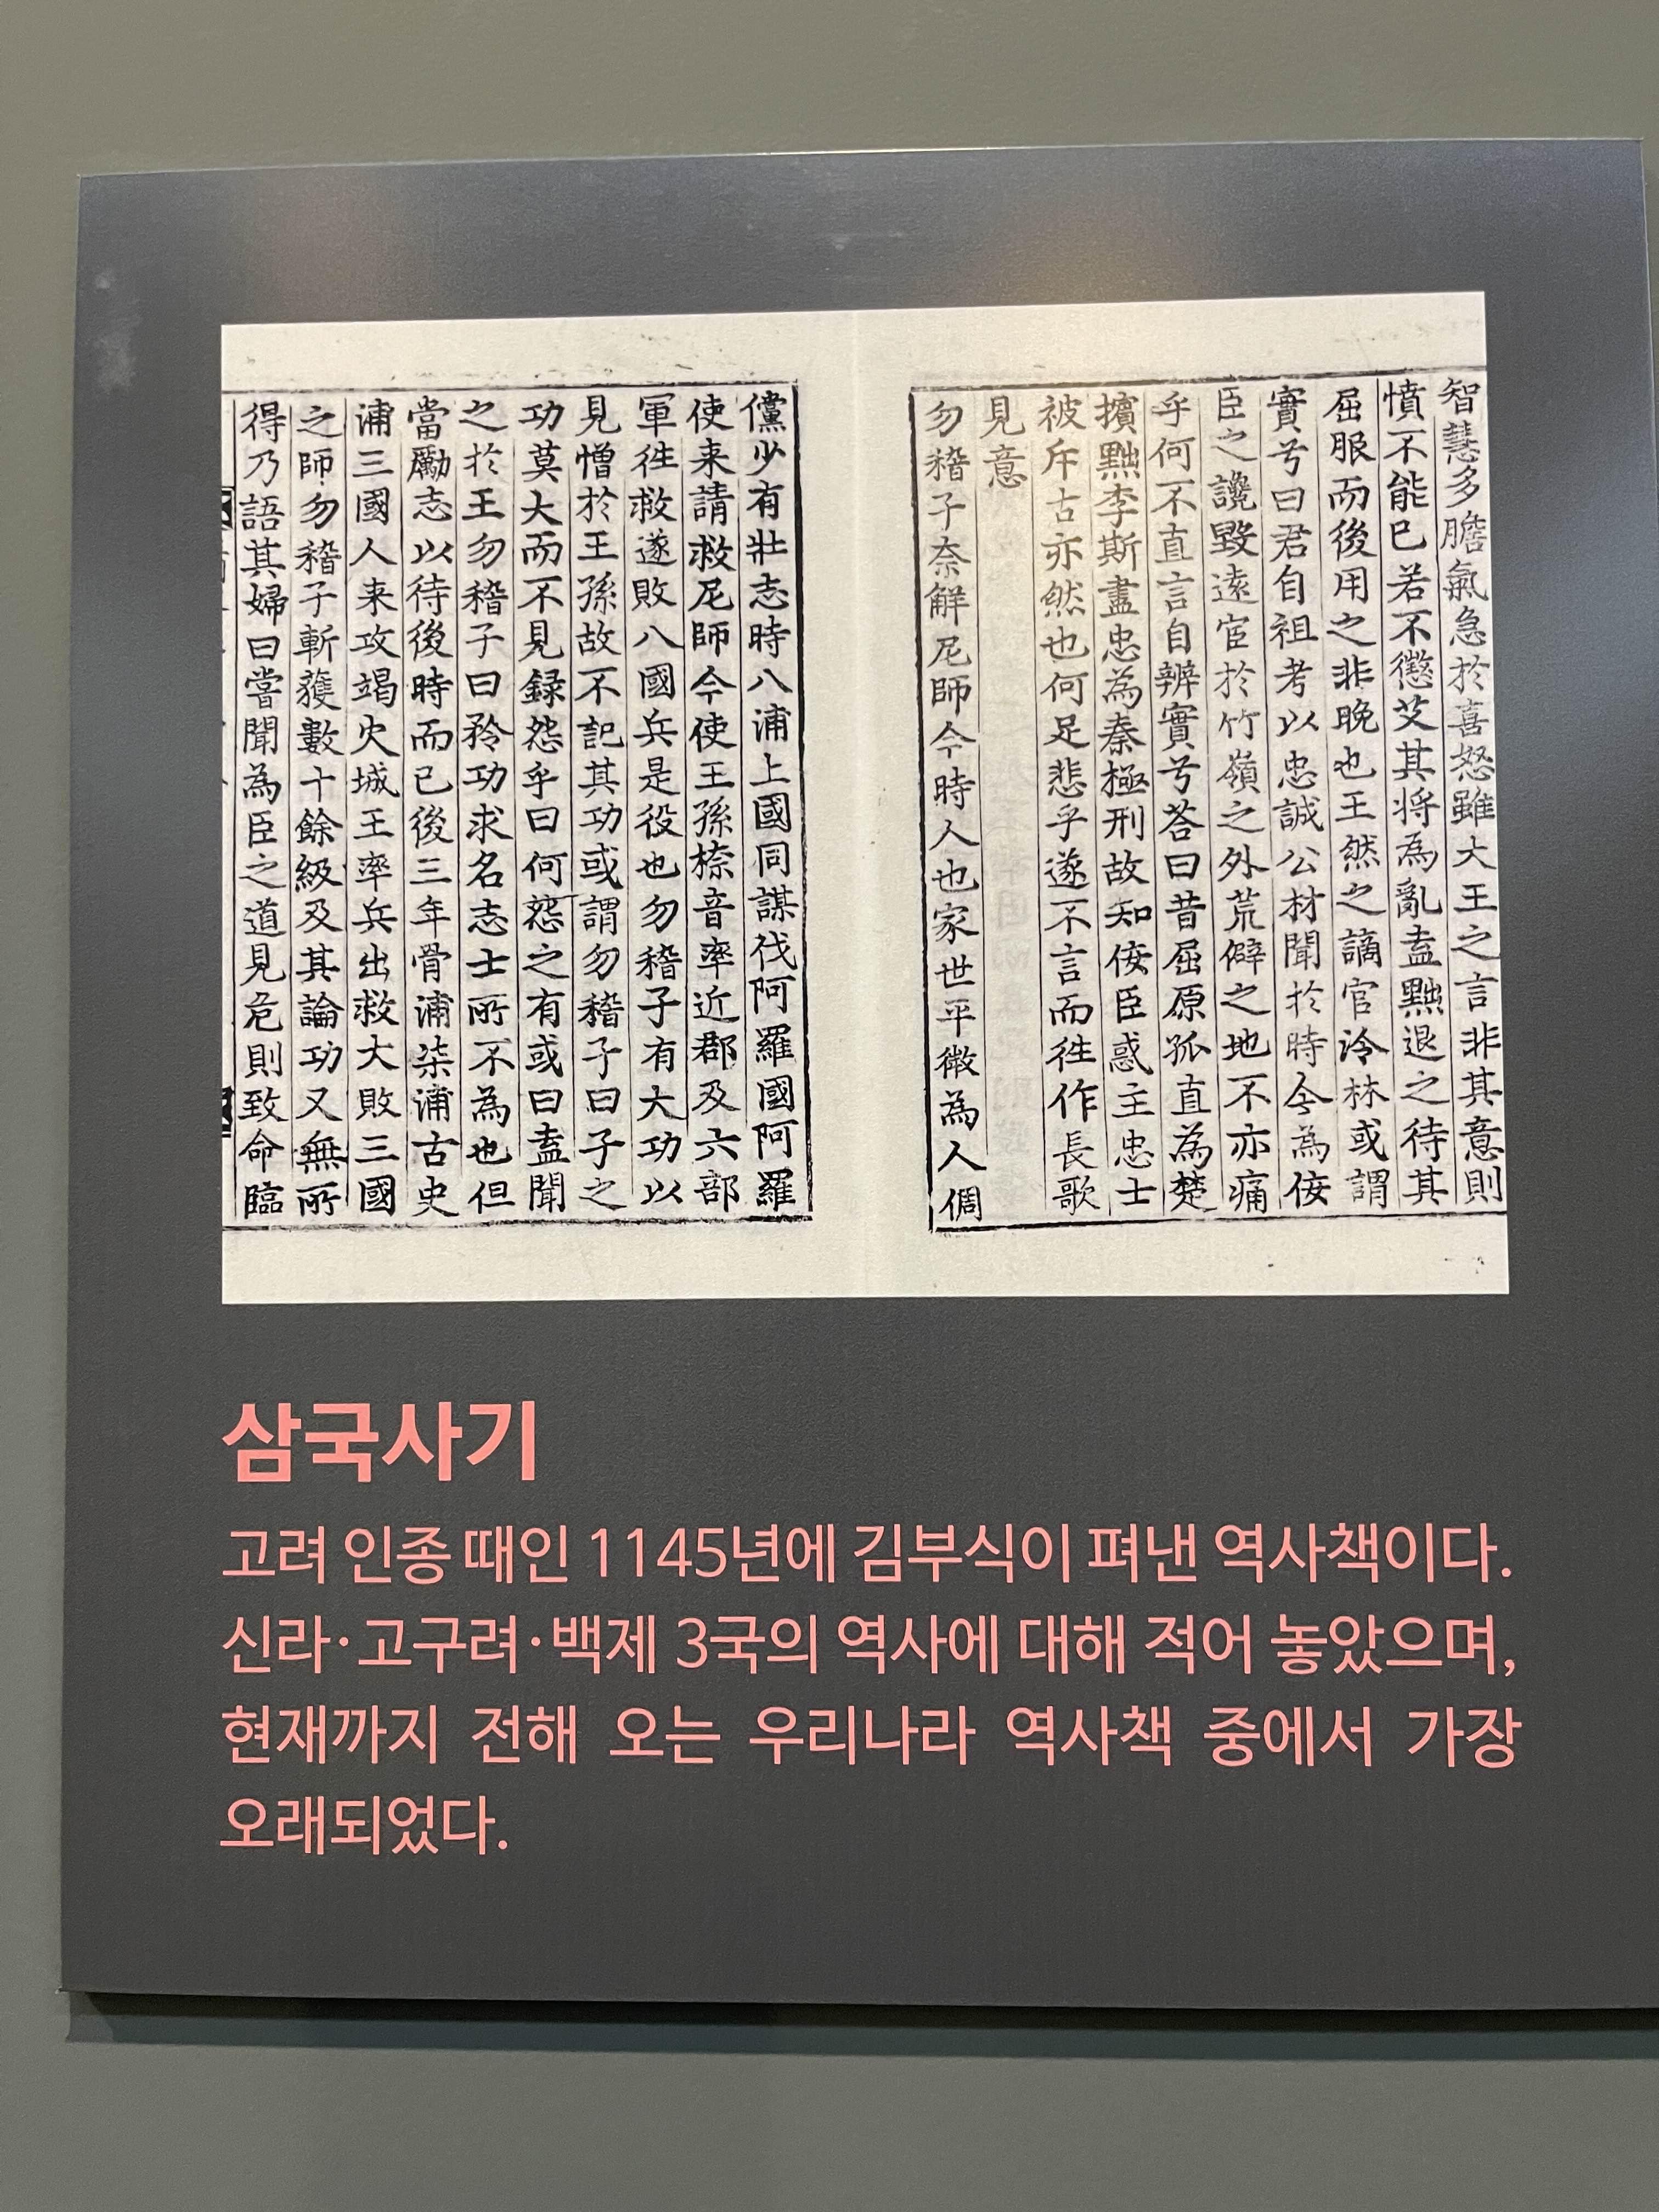 智慧多膽氣急於喜怒雖大王之言非其意則
憤不能已若不懲艾其將為亂盍黜退之待其
屈服而後用之非晚也王然之謫官泠林或謂
實兮曰君自祖考以忠誠公材聞於時今為佞
臣之讒毀遠宦於竹嶺之外荒僻之地不亦痛
乎何不直言自辨實兮荅曰昔屈原孤直為楚
擯黜李斯盡忠為秦極刑故知佞臣惑主忠士
被斥古亦然也何足悲乎遂不言而徃作長歌
見意
勿稽子奈解尼師今時人也家世平微為人倜
儻少有壯志時八浦上國同謀伐阿羅國阿羅
使来請救尼師今使王孫㮈音率近郡及六部
軍徃救遂敗八國兵是役也勿稽子有大功以
見憎於王孫故不記其功或謂勿稽子曰子之
功莫大而不見録怨乎曰何怨之有或曰盍聞
之於王勿稽子曰矜功求名志士所不為也但
當勵志以待後時而已後三年骨浦柒浦古史
浦三國人来攻竭火城王率兵出救大敗三國
之師勿稽子斬獲數十餘級及其論功又無所
得乃語其婦曰嘗聞為臣之道見危則致命臨
삼국사기
고려 인종 때인 1145년에 김부식이 펴낸 역사책이다.
신라·고구려·백제 3국의 역사에 대해 적어 놓았으며,
현재까지 전해 오는 우리나라 역사책 중에서 가장
오래되었다.